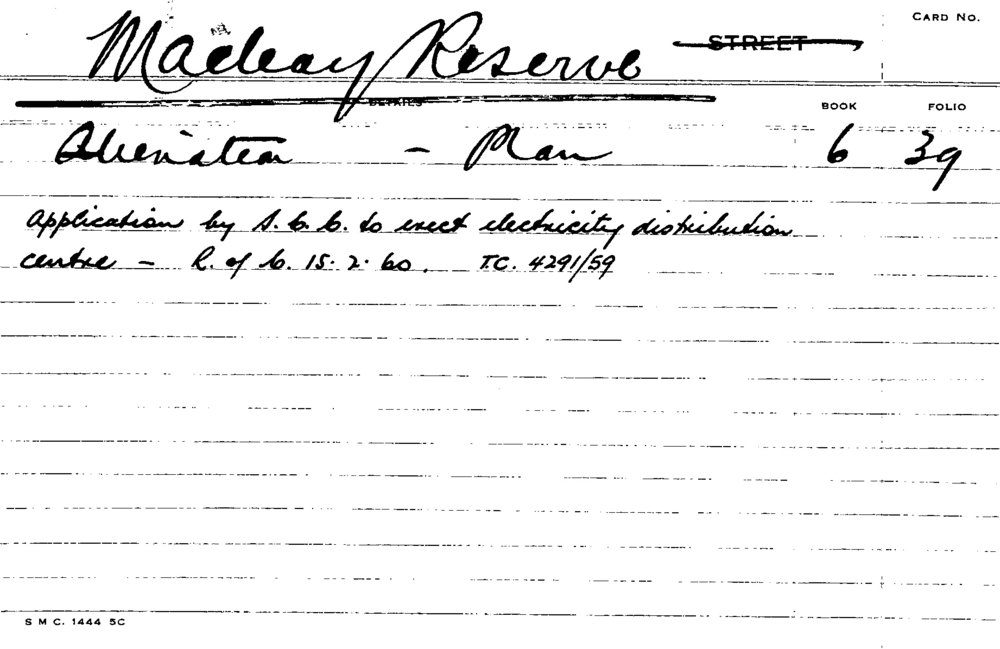 CARD NO.
Macleay Reserve STREET
DETAILS BOOK FOLIO
Alienation - Plan 6 39
Application by S.C.C. to erect electricity distribution
centre - R. of C. 15.2.60. T.C. 4291/59
S M C. 1444 5C